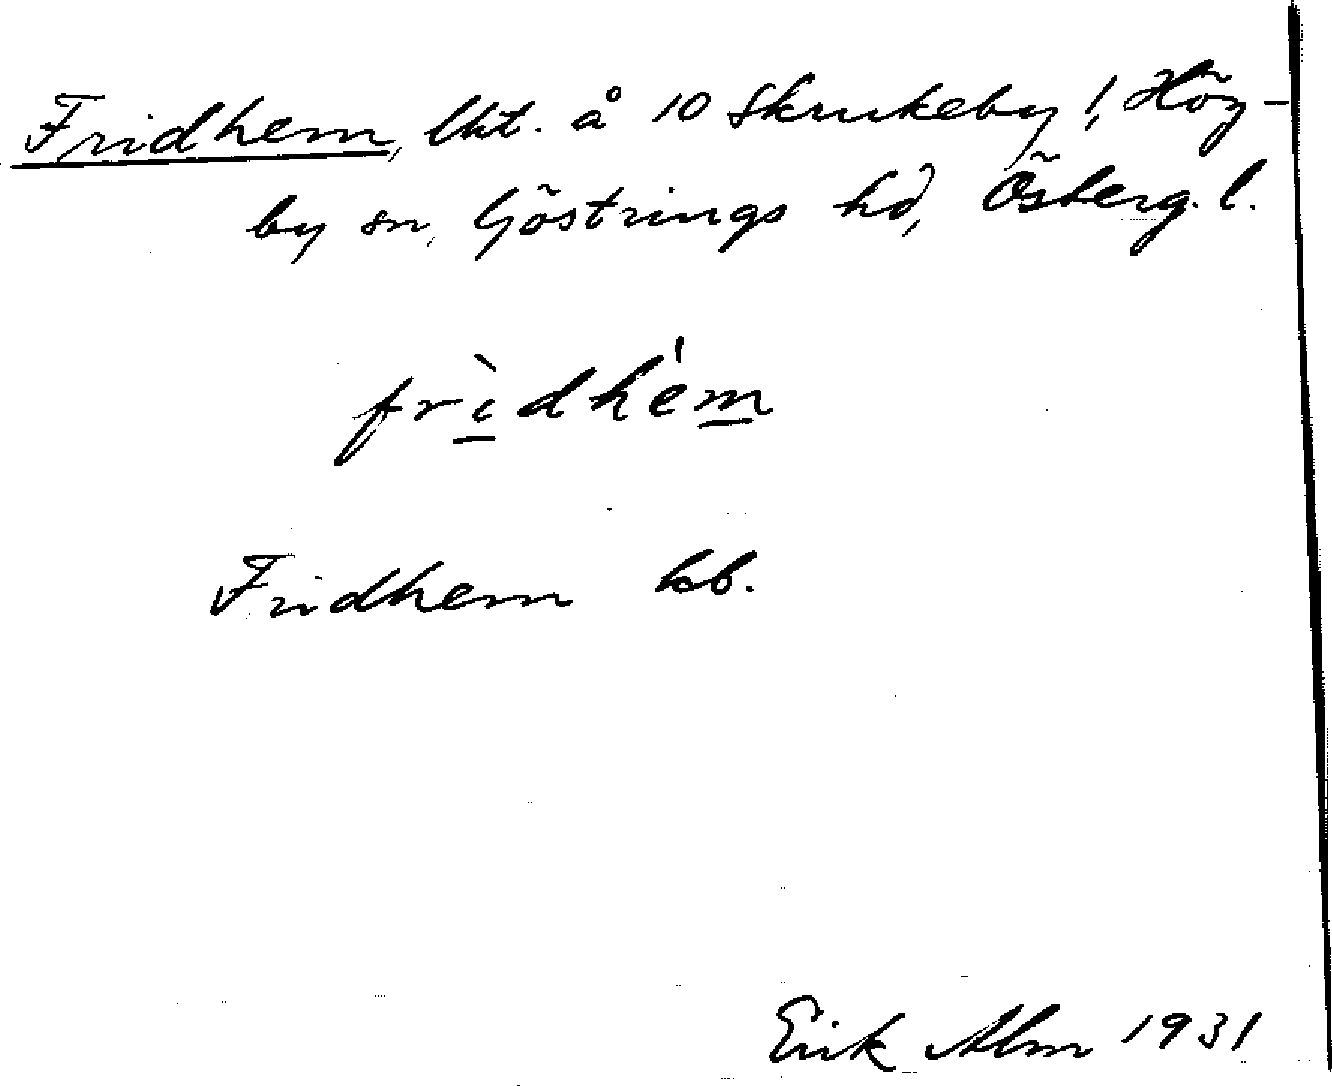 Fridhem, lht. å 10 Skrukeby!, Hög-
by sn, Göstrings hd, Österg. l.
frìdhém
Fridhem kb.
Erik Alm 1931